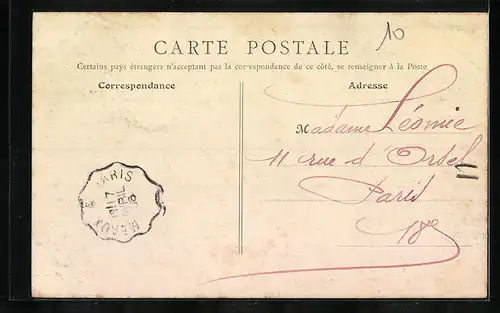 10
CARTE POSTALE
Certains pays étrangers n'acceptant pas la correspondance de ce côté, se renseigner à la Poste
Correspondance
Adresse
Madame Lésmie
11 rue d'Orsel
Paris
18e
PARIS
MEAUX